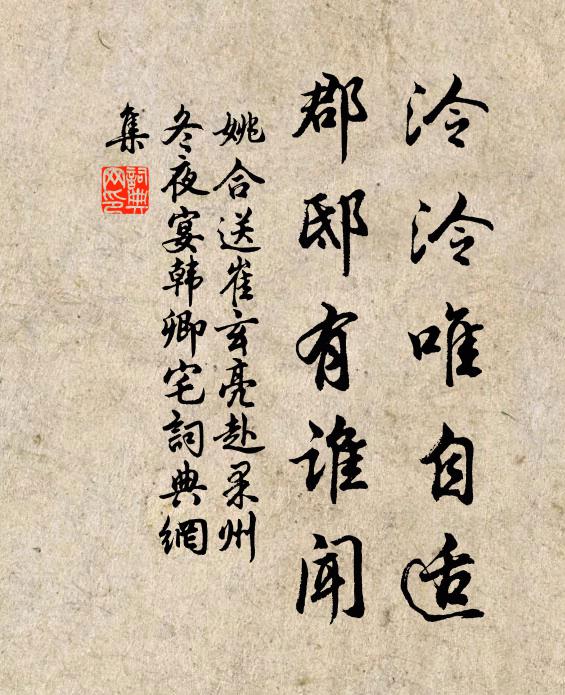 泠泠唯自适
郡邸有谁闻
姚合送崔玄亮赴果州
冬夜宴韩卿宅詞典網
集
詞典網印